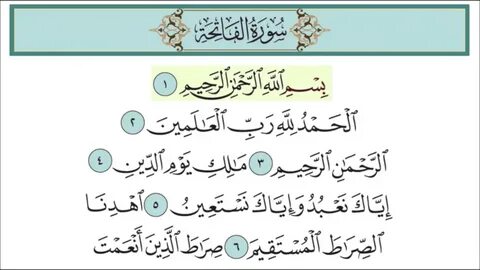 سُورَةُ الفَاتِحَةِ
بِسْمِ ٱللَّهِ ٱلرَّحْمَٰنِ ٱلرَّحِيمِ ١
ٱلْحَمْدُ لِلَّهِ رَبِّ ٱلْعَالَمِينَ ٢
ٱلرَّحْمَٰنِ ٱلرَّحِيمِ ٣ مَالِكِ يَوْمِ ٱلدِّينِ ٤
إِيَّاكَ نَعْبُدُ وَإِيَّاكَ نَسْتَعِينُ ٥ ٱهْدِنَا
ٱلصِّرَاطَ ٱلْمُسْتَقِيمَ ٦ صِرَاطَ ٱلَّذِينَ أَنْعَمْتَ